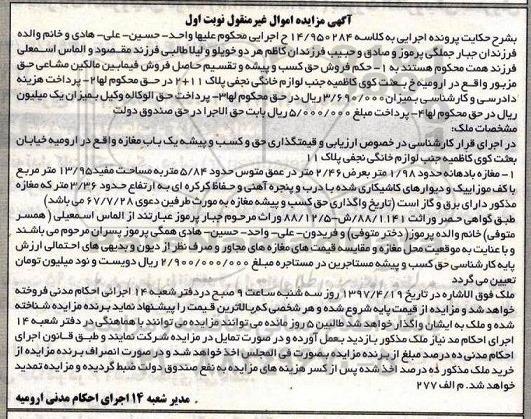 آگهی مزایده اموال غیرمنقول نوبت اول
بشرح حکایت پرونده اجرایی به کلاسه ۱۴/۹۵۰۲۸۴ ح اجرایی محکوم علیها واحد- حسین- علی- هادی و خانم والده
فرزندان جبار جملگی پرموز و صادق و حبیب فرزندان کاظم هر دو خویلو و لیلا طالبی فرزند مقصود و الماس اسمعلی
فرزند همت محکوم هستند به ۱- حکم فروش حق کسب و پیشه و تقسیم حاصل فروش فیمابین مالکین مشاعی حق
مزبور واقع در ارومیه خ بعثت کوی کاظمیه جنب لوازم خانگی نجفی پلاک ۱۱+۲ در حق محکوم لها ۲- پرداخت هزینه
دادرسی و کارشناسی بمیزان ۳/۶۹۰/۰۰۰ ریال در حق محکوم لها ۳- پرداخت حق الوکاله وکیل بمیزان یک میلیون
ریال در حق محکوم لها ۴- پرداخت مبلغ ۵/۰۰۰/۰۰۰ ریال بابت حق الاجرا در حق صندوق دولت
مشخصات ملک:
در اجرای قرار کارشناسی در خصوص ارزیابی و قیمتگذاری حق و کسب و پیشه یک باب مغازه واقع در ارومیه خیابان
بعثت کوی کاظمیه جنب لوازم خانگی نجفی پلاک ۱۱
۱- مغازه بادهانه حدود ۱/۹۸ متر بعرض ۲/۴۶ متر در عمق متوس حدود ۵/۸۴ متر به مساحت مفید ۱۳/۹۵ متر مربع
با کف موزاییک و دیوارهای کاشیکاری شده با درب و پنجره آهنی و حفاظ کرکره ای به ارتفاع حدود ۳/۳۶ متر که مغازه
مذکور دارای برق و گاز است (تاریخ واگذاری حق کسب و پیشه مغازه به مورث طرفین دعوی ۶۷/۷/۲۸ می باشد)
طبق گواهی حصر وراثت ۸۸/۱۱۴۱/ش-۸۸/۱۲/۵ وراث مرحوم جبار پرموز عبارتند از الماس اسمعیلی (همسر
متوفی) خانم والده پرموز (دختر متوفی) و فریدون- علی- واحد- حسین- هادی همگی پرموز پسران مرحوم می باشند
و با عنایت به موقعیت محل مغازه و مقایسه قیمت های مغازه های مجاور و صرف نظر از دیون و بدیهی های احتمالی ارزش
پایه کارشناسی حق کسب و پیشه مستاجرین در مستاجره مبلغ ۲/۹۰۰/۰۰۰/۰۰۰ ریال دویست و نود میلیون تومان
تعیین می گردد
ملک فوق الاشاره در تاریخ ۱۳۹۷/۴/۱۹ روز سه شنبه ساعت ۹ صبح در دفتر شعبه ۱۴ اجرائی احکام مدنی فروخته
خواهد شد و مزایده از قیمت پایه شروع شده و هر شخصی که بالاترین قیمت را پیشنهاد نماید برنده مزایده شناخته
شده و ملک به ایشان واگذار خواهد شد طالبین ۵ روز مانده می توانند مزایده می توانند با هماهنگی در دفتر شعبه ۱۴
اجرای احکام مد نیاز ملک مذکور بازدید بعمل آورده و در صورت تمایل در مزایده شرکت نمایند و طبق قانون اجرای
احکام مدنی ده درصد مبلغ از برنده مزایده بصورت فی المجلس اخذ خواهد شد و در صورت انصراف برنده مزایده از
خرید ملک مذکور ده درصد اخذ شده پس از کسر هزینه های مزایده به نفع صندوق دولت ضبط گردیده و مزایده تمدید
خواهد شد. م الف ۲۷۷
مدیر شعبه ۱۴ اجرای احکام مدنی ارومیه